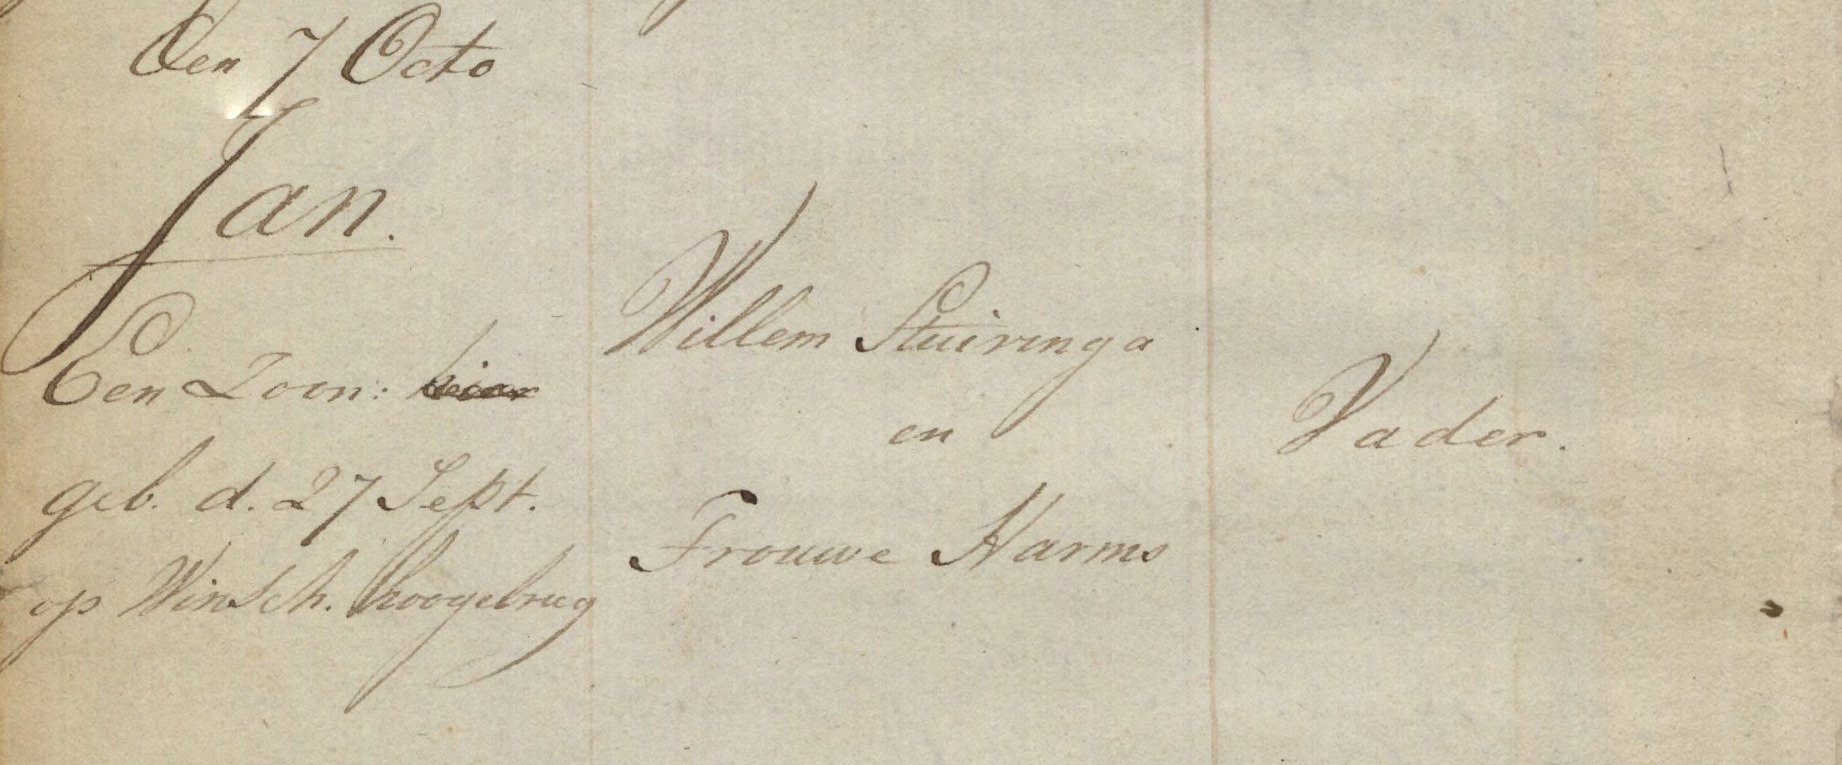 den 7 Octo
Jan.
Een Zoon: hier
geb. d. 27 Sept.
op Winsch. hoogebrug
Willem Stuiringa
en
Frouwe Harms
Vader.